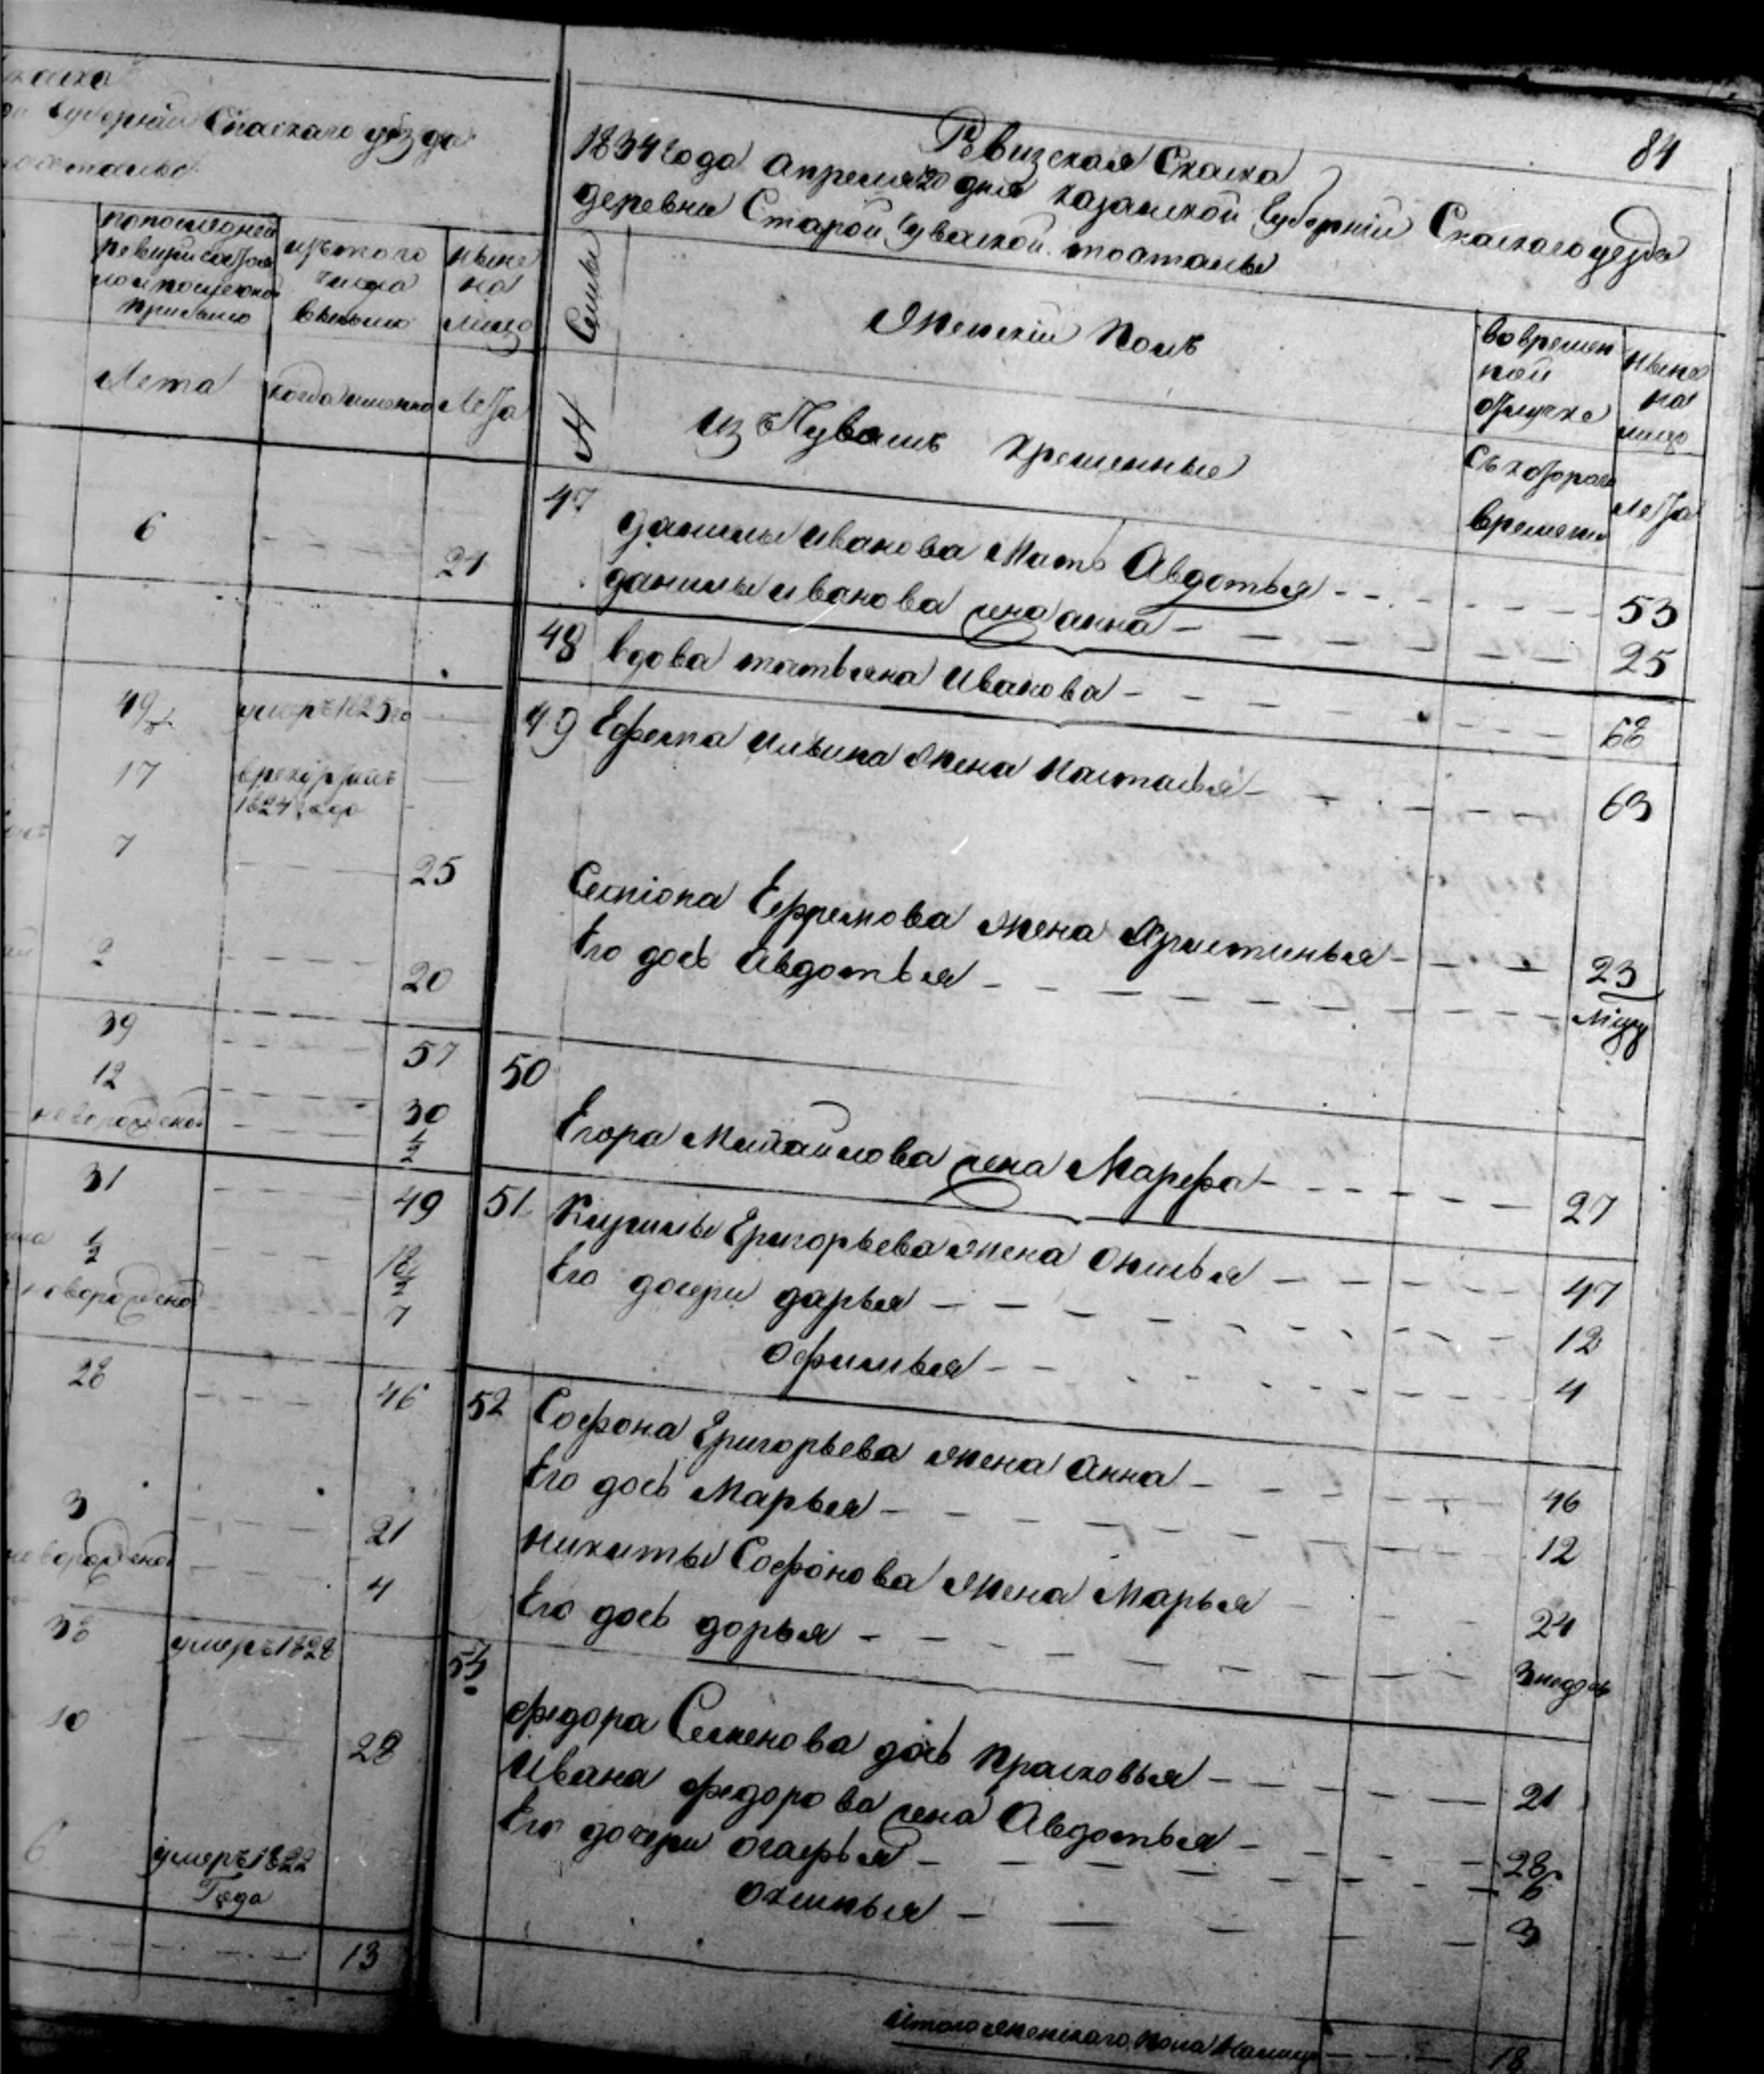 губерніи Спаскаго уѣзда
по последней
ревизіи состояло
и после оной
прибыло
изъ того
числа
выбыло
ныне
на
лицо
Лета
когда именно
Лета
6
21
49
умеръ 1825 го
17
в рекруты
1824 года
7
25
2
20
39
57
12
30
новорожденой
1/2
31
49
1/2
18 1/2
новорожденой
7
28
46
3
21
новорожденой
4
38
умеръ 1828
10
28
6
умеръ 1822
Года
13
84
Ревизская Сказка
1834 года апреля 20 дня казанской Губерніи Спаскаго уезда
деревни Старой Чувашской
Семьи
№
Женскій Полъ
во времен
ной
отлучке
ныне
на
лицо
Изъ Чувашъ крещенные
съ котораго
времени
Лета
47
данилы иванова Мать Авдотья 53
данилы иванова жена анна 25
48 вдова татьяна Иванова 68
49 Ефрема ильина жена настасья 63
Семіона Ефремова жена Христинья 23
Его дочь авдотья
50
Егора Михайлова жена Марефа 27
51 Кирилы Григорьева жена 47
Его дочери дарья 12
офимья 4
52 Софона Григорьева жена анна 46
Его дочь Марья 12
никиты Софонова жена Марья 24
Его дочь дорья 3 недель
53
федора Семенова дочь прасковья 21
Ивана федорова жена Авдотья 28
Его дочери огафья 6
3
Итого женскаго пола налицо 18